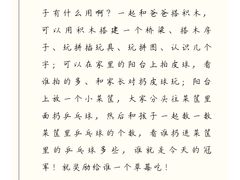 子有什么用啊？一起和爸爸搭积木，
可以用积木搭建一个桥梁、搭木房
子、玩拼插玩具、玩拼图、认识几个
字；可以在家里的阳台上拍皮球，看
谁拍的多、和家长对扔皮球玩；阳台上
放一个小菜筐，大家分头往菜筐里
面扔乒乓球，然后和孩子一起数一数
菜筐里乒乓球的个数，看谁扔进菜筐
里的乒乓球多些，谁就是今天的冠
军！就奖励给谁一个草莓吃！